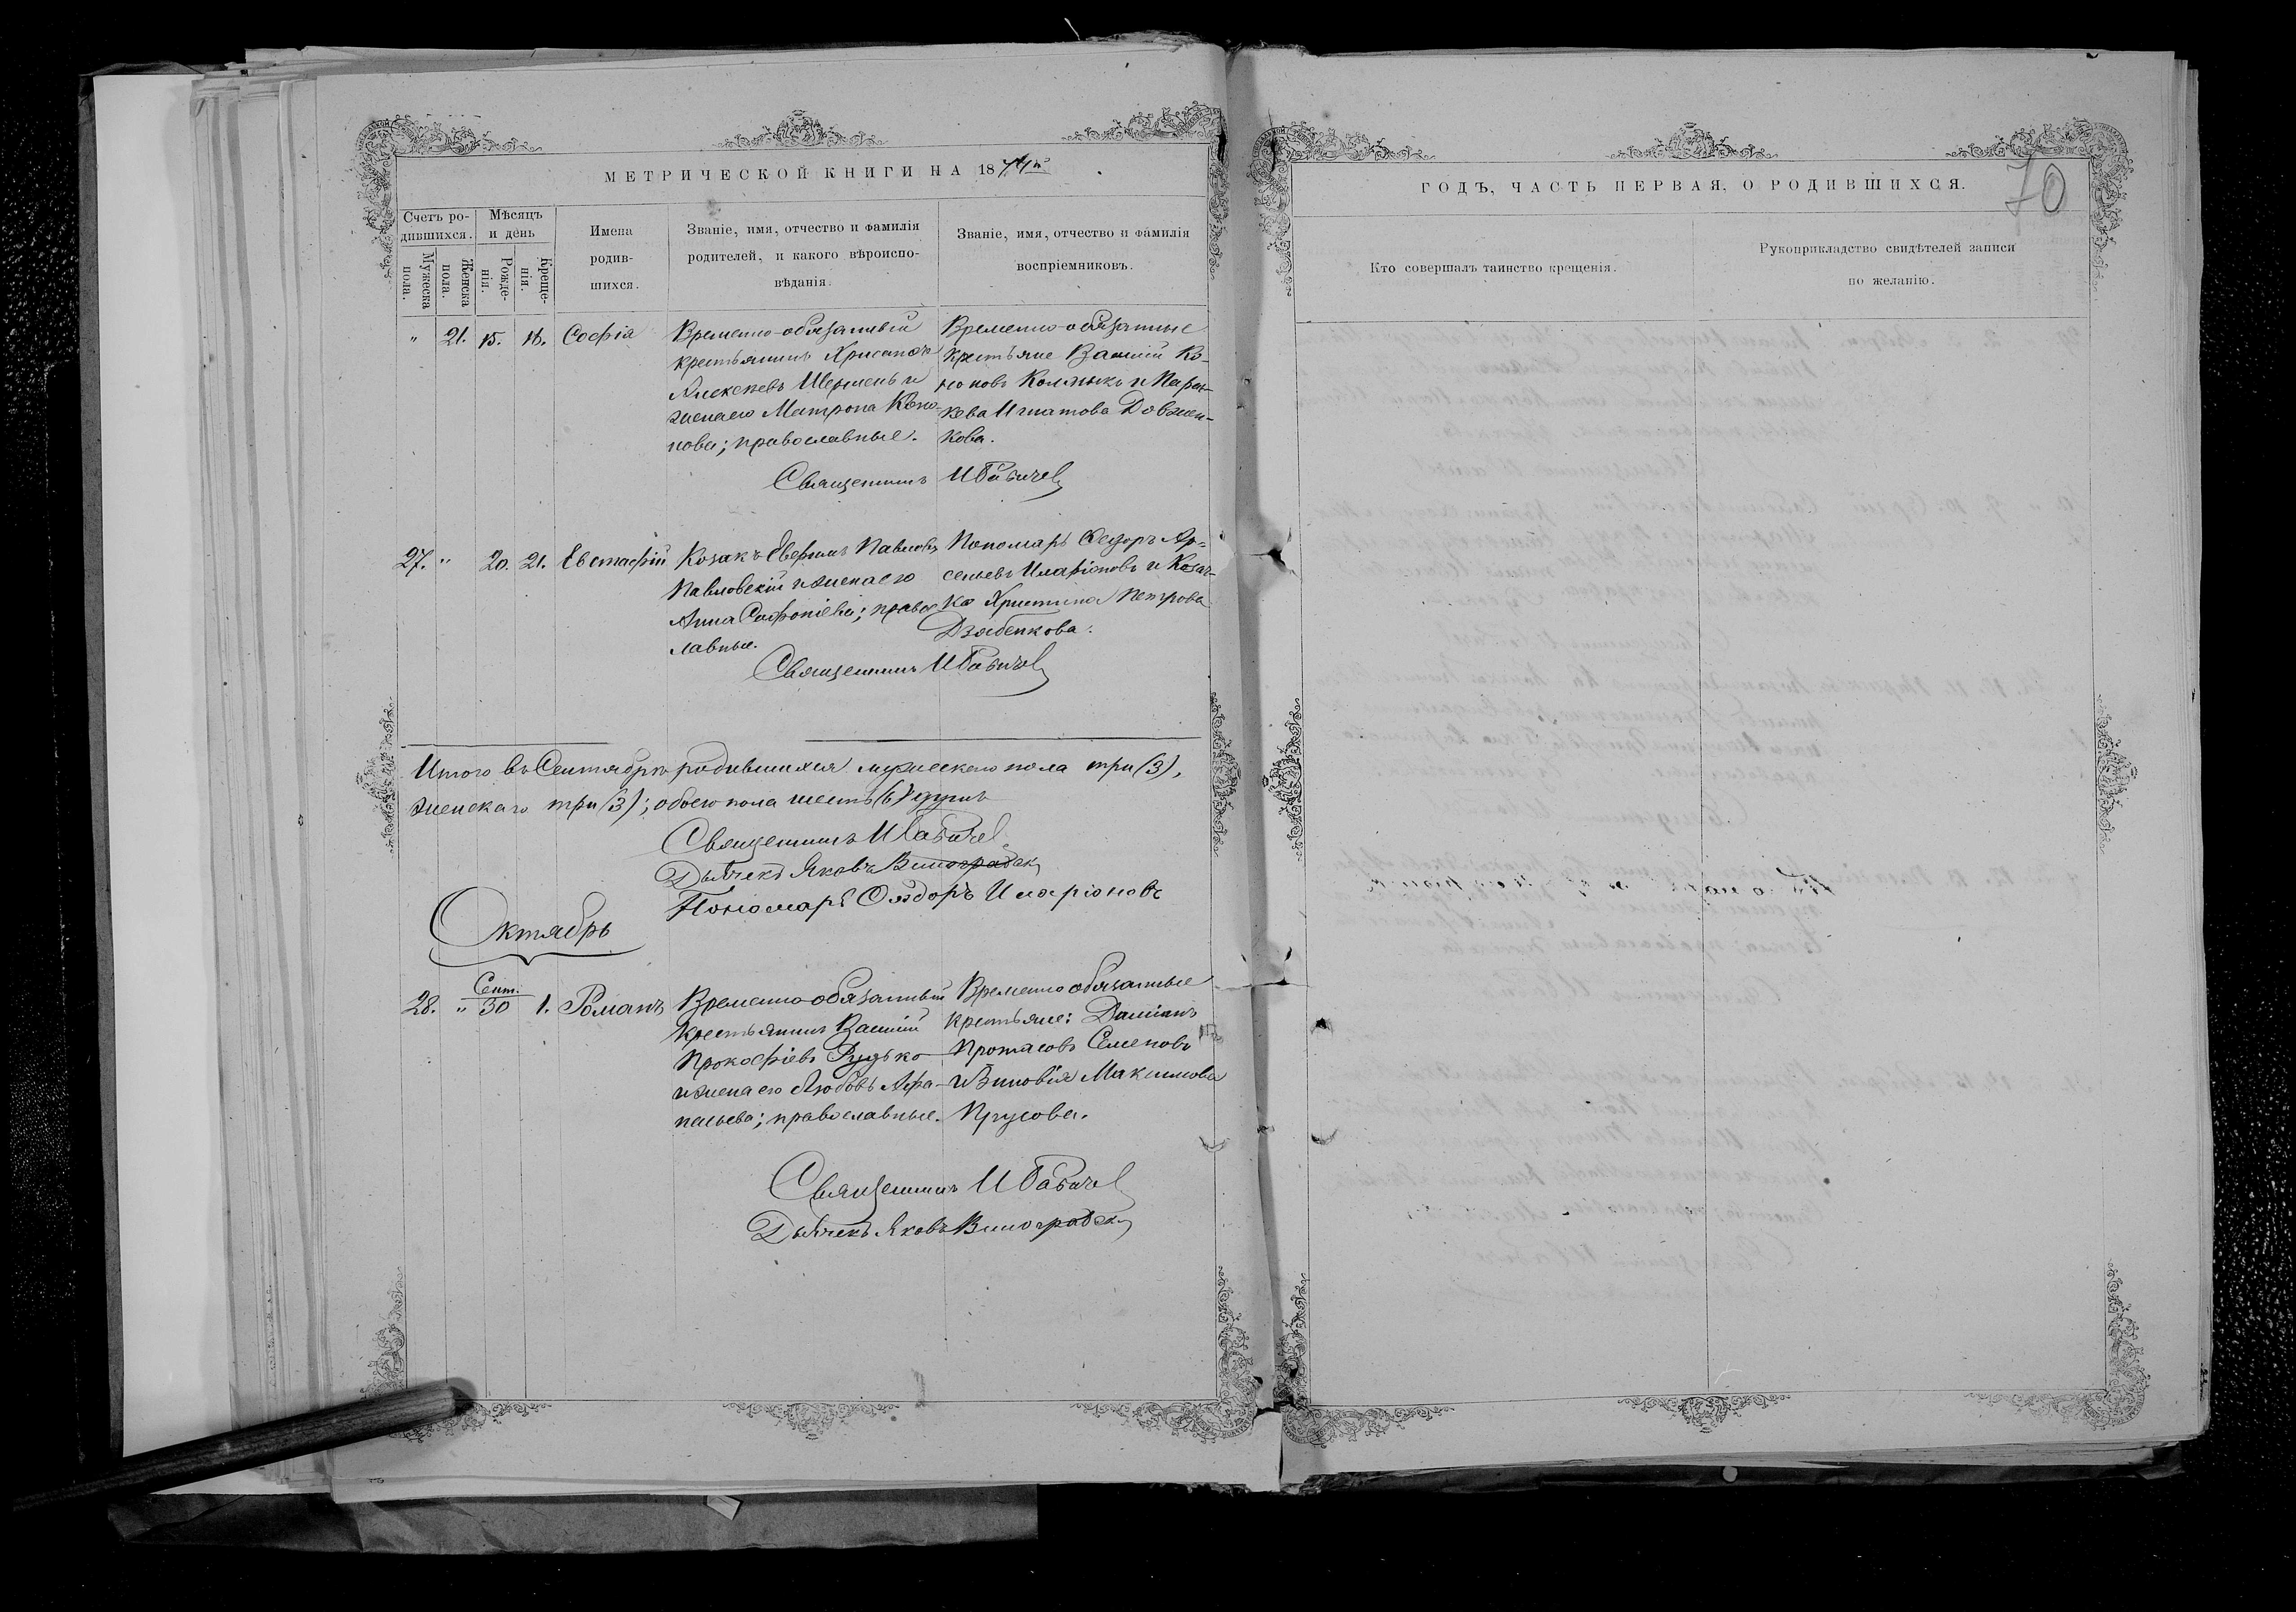 МЕТРИЧЕСКОЙ КНИГИ НА 1874й
Счетъ ро-
дившихся.
Мѣсяцъ
и день
Мужеска
пола.
Женска
пола.
Рожде-
нія.
Креще-
нія.
Имена
родив-
шихся.
Званіе, имя, отчество и фамилія
родителей, и какого вѣроиспо-
вѣданія.
Званіе, имя, отчество и фамилія
воспріемниковъ.
" 21. 15. 18. Софія
Временно-обязанный
крестьянинъ Хрисанфъ
Алексѣевъ Шершень и
жена его Матрона Коно-
нова; православные.
Временно-обязанные
крестьяне Василій Ко-
ноновъ и Парас-
кева Игнатова Довжен-
кова.
Священникъ И Бабичев
27. " 20. 21. Евстафій
Козакъ Евфимъ Павловъ
Павловскій и жена его
Анна Софроніева; правос
лавные.
Пономарь Ѳедоръ Ар-
сеньевъ Иларіоновъ и Козач-
ка Христина Петрова
Дзябенкова.
Священникъ И Бабичев
Итого въ Сентябрѣ родившихся мужескаго пола три (3),
женскаго три (3); обоего пола шесть (6) душъ
Священникъ И Бабичев
Дьячекъ Яковъ Виноградск
Пономарь Ѳедоръ Иларіоновъ
Октябрь
28. " Сент. 30 1. Романъ
Временно обязанный
крестьянинъ Василій
Прокофіевъ Рудько
и жена его Любовь Афа-
насьева; православные.
Временно обязанные
крестьяне: Даміанъ
Протасовъ Семеновъ
и Зиновія Максимова
Прусова.
Священникъ И Бабичев
Дьячекъ Яковъ Виноградск
ГОДЪ, ЧАСТЬ ПЕРВАЯ, О РОДИВШИХСЯ.
70
Кто совершалъ таинство крещенія.
Рукоприкладство свидѣтелей записи
по желанію.